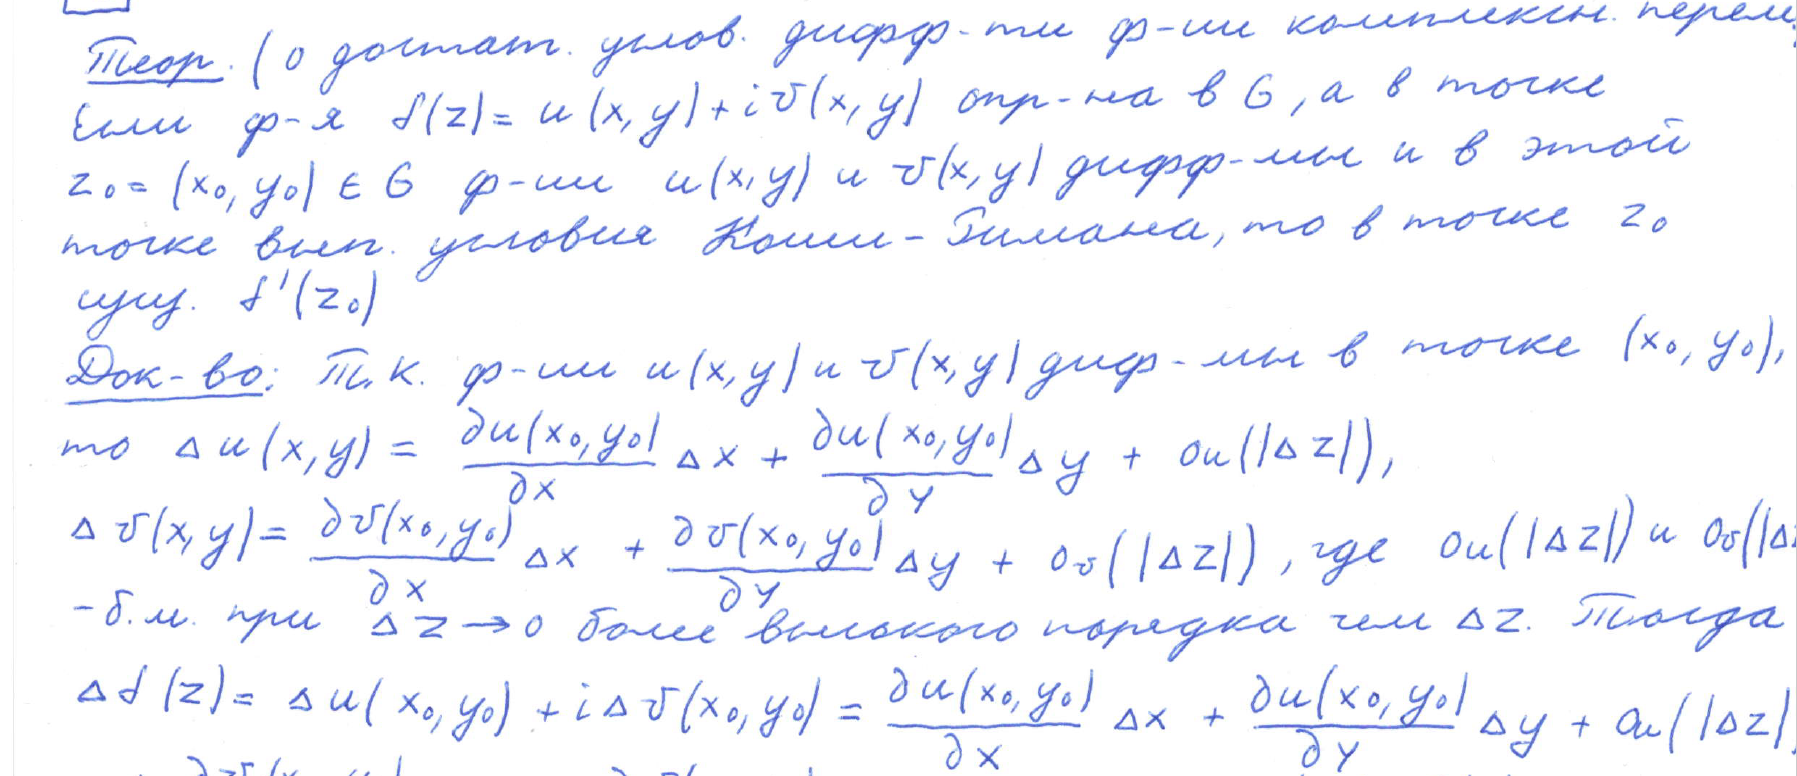 Теор. (о достат. услов. дифф-ти ф-ии комплексн. перем.
Если ф-я f(z) = u(x, y) + i v(x, y) опр-на в G, а в точке
z₀ = (x₀, y₀) ∈ G ф-ии u(x, y) и v(x, y) дифф-мы и в этой
точке вып. условия Коши - Римана, то в точке z₀
сущ. f'(z₀)
Док-во: Т.к. ф-ии u(x, y) и v(x, y) диф-мы в точке (x₀, y₀),
то Δu(x, y) = ∂u(x₀, y₀)/∂x Δx + ∂u(x₀, y₀)/∂y Δy + oᵤ(|Δz|),
Δv(x, y) = ∂v(x₀, y₀)/∂x Δx + ∂v(x₀, y₀)/∂y Δy + oᵥ(|Δz|), где oᵤ(|Δz|) и oᵥ(|Δz
- б.м. при Δz → 0 более высокого порядка чем Δz. Тогда
Δf(z) = Δu(x₀, y₀) + iΔv(x₀, y₀) = ∂u(x₀, y₀)/∂x Δx + ∂u(x₀, y₀)/∂y Δy + oᵤ(|Δz|)